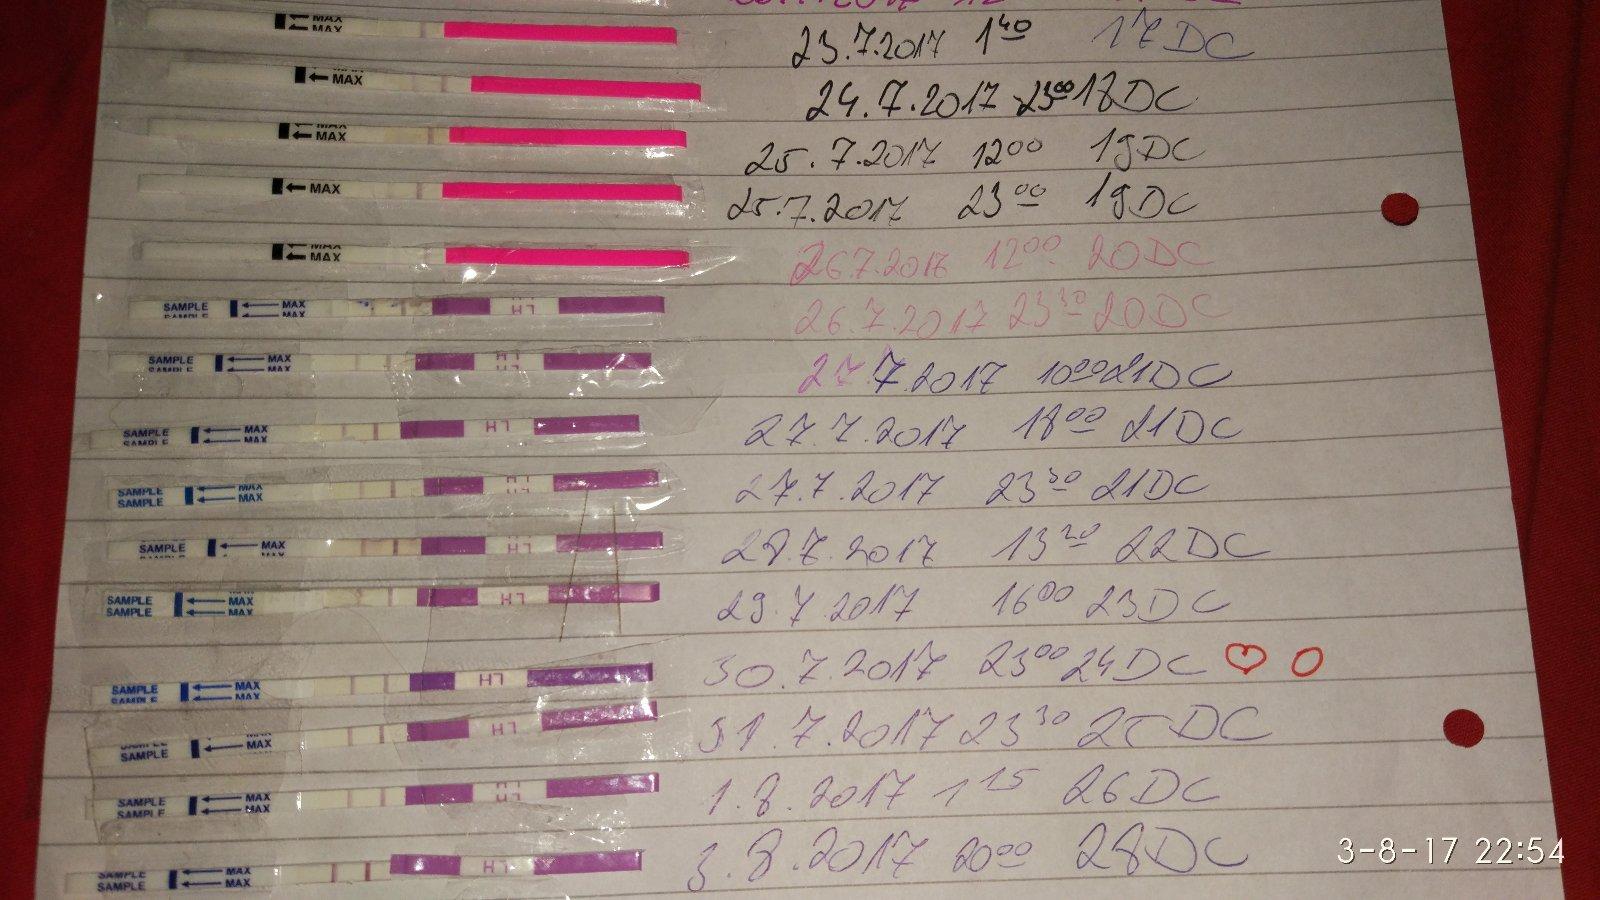 MAX MAX 23.7.2017 1 40 17 DC
MAX 24.7.2017 23 00 18 DC
MAX MAX 25.7.2017 12 00 19 DC
MAX 25.7.2017 23 00 19 DC
MAX MAX 26.7.2017 12 00 20 DC
SAMPLE SAMPLE MAX MAX LH 26.7.2017 23 30 20 DC
SAMPLE SAMPLE MAX MAX LH LH 27.7.2017 10 00 21 DC
SAMPLE SAMPLE MAX MAX LH 27.7.2017 18 00 21 DC
SAMPLE SAMPLE MAX MAX LH LH 27.7.2017 23 30 21 DC
SAMPLE MAX LH 28.7.2017 13 20 22 DC
SAMPLE SAMPLE MAX MAX LH 29.7.2017 16 00 23 DC
SAMPLE SAMPLE MAX MAX LH 30.7.2017 23 00 24 DC
SAMPLE SAMPLE MAX MAX LH 31.7.2017 23 30 25 DC
SAMPLE SAMPLE MAX MAX LH LH 1.8.2017 1 15 26 DC
SAMPLE SAMPLE MAX MAX LH 3.8.2017 20 00 28 DC
3-8-17 22:54